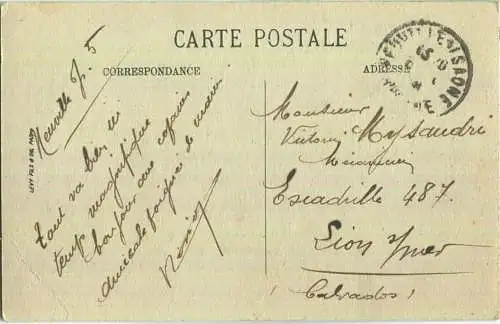 CARTE POSTALE
CORRESPONDANCE
ADRESSE
NEUVILLE S/SAONE
Neuville J. 5
Tout va bien
temps magnifique
bonjour aux copains
amicale poignée de main
LEVY FILS & CIE, PARIS
Monsieur
Victor Mysandri
Mécanicien
Escadrille 487.
Lion s/mer
Calvados